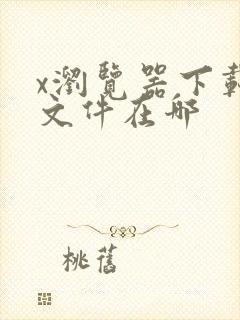 x瀏覽器下載
文件在哪
桃舊